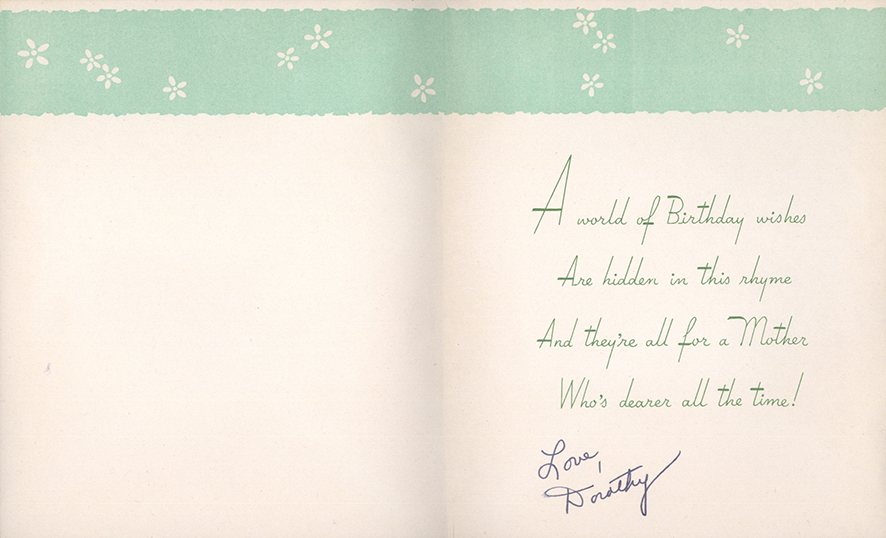 A world of Birthday wishes
Are hidden in this rhyme
And they're all for a Mother
Who's dearer all the time!
Love,
Dorothy